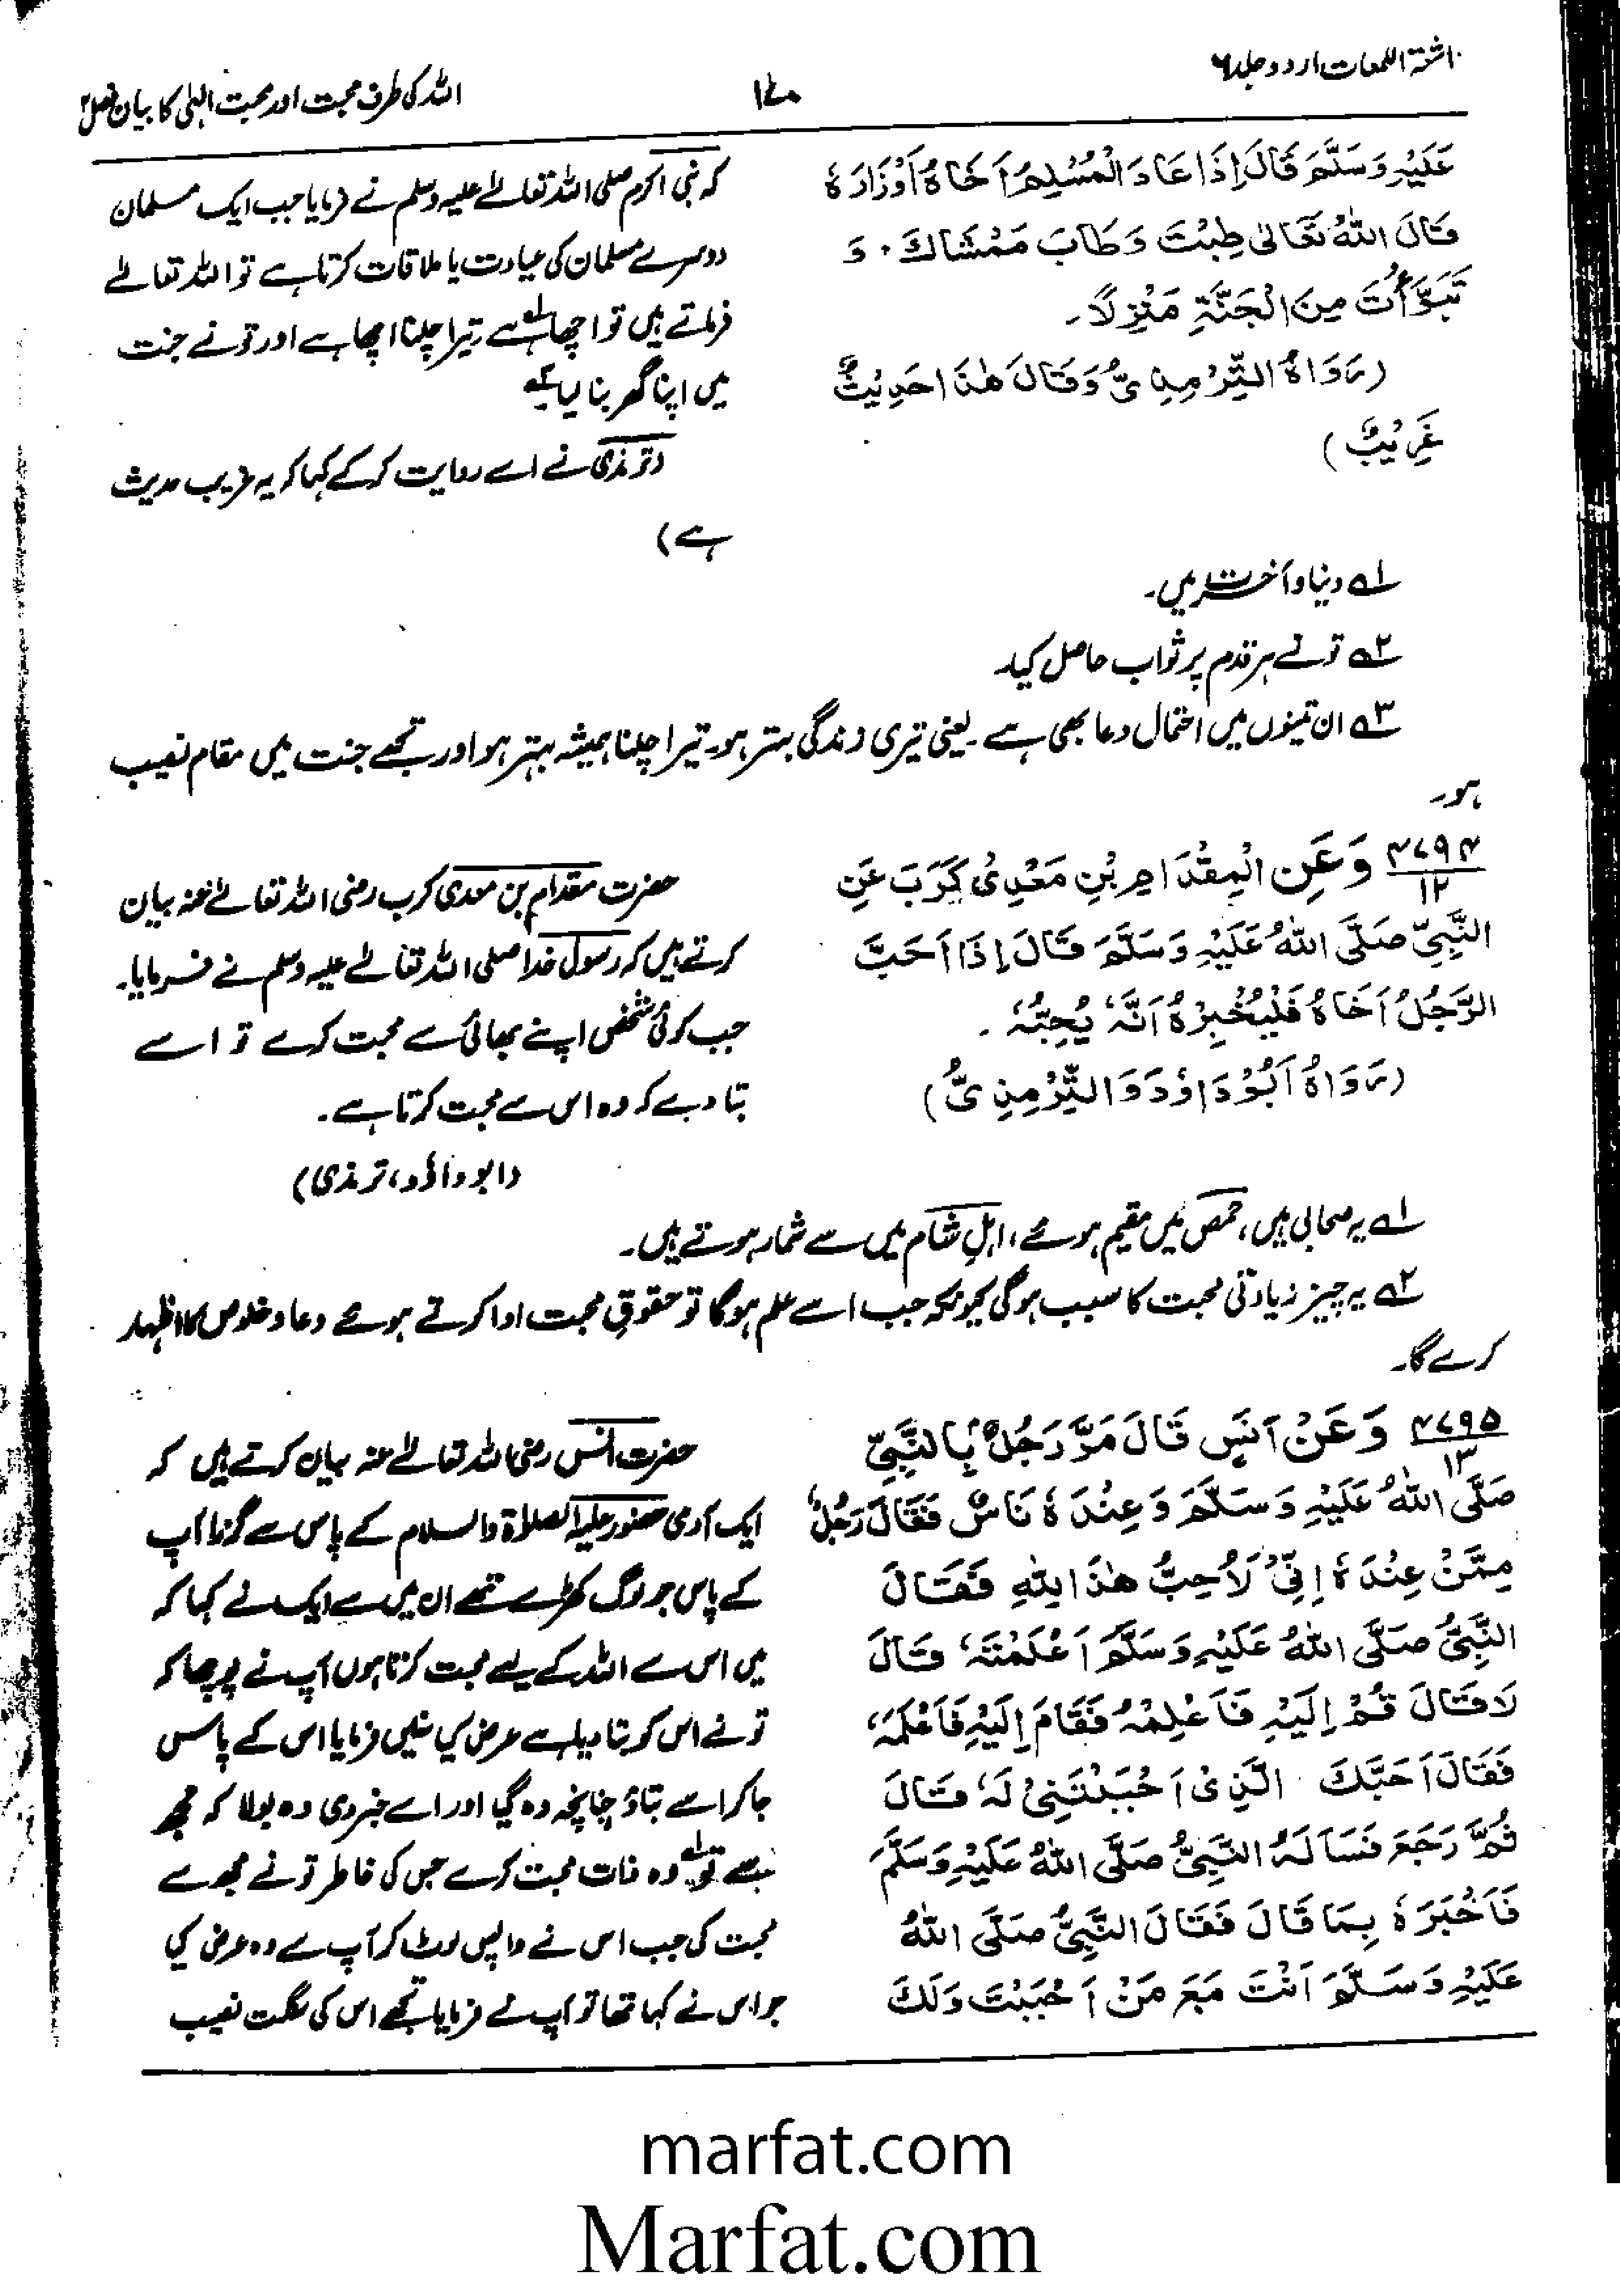 اشعۃ اللمعات اردو جلد ۶
۱۷۰
اللہ کی طرف محبت اور محبت الٰہی کا بیان فصل ۲
عَلَيْهِ وَسَلَّمَ قَالَ اِذَا عَادَ الْمُسْلِمُ اَخَاهُ اَوْزَارَهٗ
قَالَ اللّٰهُ تَعَالٰى طِبْتَ وَطَابَ مَمْشَاكَ، وَ
تَبَوَّأْتَ مِنَ الْجَنَّةِ مَنْزِلًا۔
(رَوَاهُ التِّرْمِذِىُّ وَقَالَ هٰذَا حَدِيْثٌ
غَرِيْبٌ)
کہ نبی اکرم صلی اللہ تعالےٰ علیہ وسلم نے فرمایا جب ایک مسلمان
دوسرے مسلمان کی عیادت یا ملاقات کرتا ہے تو اللہ تعالےٰ
فرماتے ہیں تو اچھا ہے تیرا چلنا اچھا ہے اور تو نے جنت
میں اپنا گھر بنا لیا ہے
(ترمذی نے اسے روایت کر کے کہا کہ یہ غریب حدیث
ہے)
۱؎ دنیا و آخرت میں۔
۲؎ تو نے ہر قدم پر ثواب حاصل کیا۔
۳؎ ان تینوں میں احتمال دعا بھی ہے۔ یعنی تیری زندگی بہتر ہو۔ تیرا چلنا ہمیشہ بہتر ہو اور تجھے جنت میں مقام نصیب
ہو۔
۴۷۹۴
۱۲
وَعَنِ الْمِقْدَامِ بْنِ مَعْدِىْ كَرَبَ عَنِ
النَّبِيِّ صَلَّى اللّٰهُ عَلَيْهِ وَسَلَّمَ قَالَ اِذَا اَحَبَّ
الرَّجُلُ اَخَاهُ فَلْيُخْبِرْهُ اَنَّهٗ يُحِبُّهٗ۔
(رَوَاهُ اَبُوْدَاوٗدَ وَالتِّرْمِذِىُّ)
حضرت مقدام بن معدی کرب رضی اللہ تعالےٰ عنہ بیان
کرتے ہیں کہ رسول خدا صلی اللہ تعالےٰ علیہ وسلم نے فرمایا۔
جب کوئی شخص اپنے بھائی سے محبت کرے تو اسے
بتا دے کہ وہ اس سے محبت کرتا ہے۔
(ابو داؤد، ترمذی)
۱؎ یہ صحابی ہیں، حمص میں مقیم ہوئے، اہلِ شام میں سے شمار ہوتے ہیں۔
۲؎ یہ چیز زیادتی محبت کا سبب ہوگی کیونکہ جب اسے علم ہوگا تو حقوقِ محبت ادا کرتے ہوئے دعا و خلوص کا اظہار
کرے گا۔
۴۷۹۵
۱۳
وَعَنْ اَنَسٍ قَالَ مَرَّ رَجُلٌ بِالنَّبِيِّ
صَلَّى اللّٰهُ عَلَيْهِ وَسَلَّمَ وَعِنْدَهٗ نَاسٌ فَقَالَ رَجُلٌ
مِمَّنْ عِنْدَهٗ اِنِّىْ لَاُحِبُّ هٰذَا لِلّٰهِ فَقَالَ
النَّبِيُّ صَلَّى اللّٰهُ عَلَيْهِ وَسَلَّمَ اَعْلَمْتَهٗ قَالَ
لَا قَالَ قُمْ اِلَيْهِ فَاَعْلِمْهُ فَقَامَ اِلَيْهِ فَاَعْلَمَهٗ
فَقَالَ اَحَبَّكَ الَّذِىْ اَحْبَبْتَنِىْ لَهٗ قَالَ
ثُمَّ رَجَعَ فَسَاَلَهُ النَّبِيُّ صَلَّى اللّٰهُ عَلَيْهِ وَسَلَّمَ
فَاَخْبَرَهٗ بِمَا قَالَ فَقَالَ النَّبِيُّ صَلَّى اللّٰهُ
عَلَيْهِ وَسَلَّمَ اَنْتَ مَعَ مَنْ اَحْبَبْتَ وَلَكَ
حضرت انس رضی اللہ تعالےٰ عنہ بیان کرتے ہیں کہ
ایک آدمی حضور علیہ الصلوٰۃ والسلام کے پاس سے گزرا آپ
کے پاس جو لوگ کھڑے تھے ان میں سے ایک نے کہا کہ
میں اس سے اللہ کے لیے محبت کرتا ہوں آپ نے پوچھا کہ
تو نے اس کو بتا دیا ہے عرض کی نہیں فرمایا اس کے پاس
جا کر اسے بتاؤ چنانچہ وہ گیا اور اسے خبر دی وہ بولا کہ تجھ
سے وہ ذات محبت کرے جس کی خاطر تو نے مجھ سے
محبت کی جب اس نے واپس لوٹ کر آپ سے وہ عرض کی
جو اس نے کہا تھا تو آپ نے فرمایا تجھے اس کی سنگت نصیب
marfat.com
Marfat.com